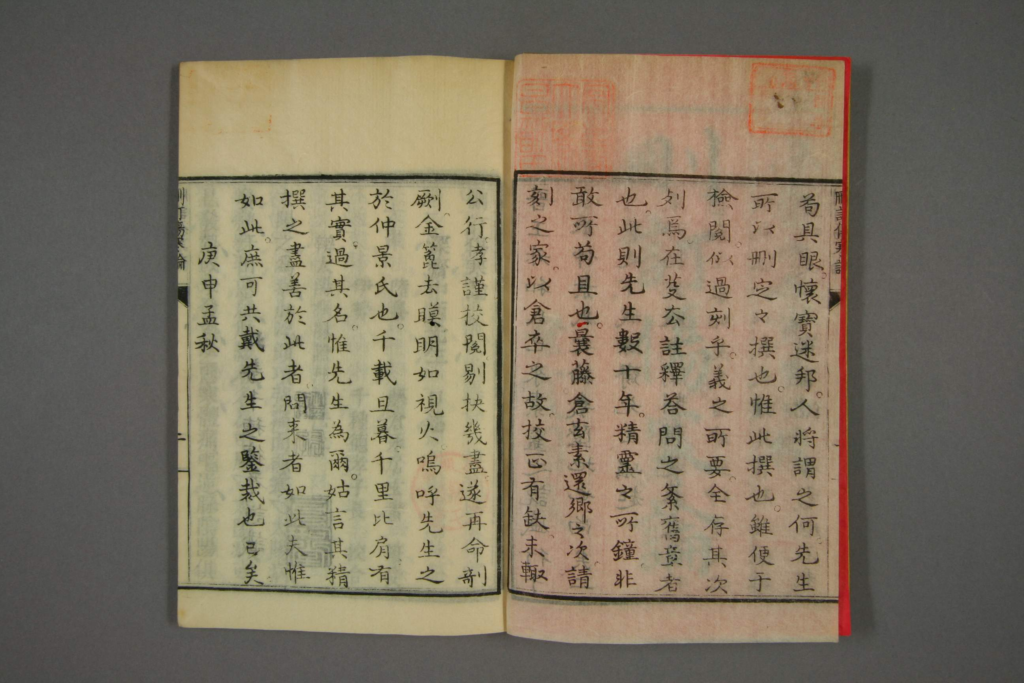 苟具眼懷寶迷邦人將謂之何先生
所以刪定之撰也惟此撰也雖便于
檢閱似過刻乎義之所要全存其次
列焉在芟太註釋答問之紊舊章者
也此則先生數十年精靈之所鐘非
敢可苟且也曩藤倉玄素還鄉之次請
刻之家以倉卒之故挍正有缺未輙
公行孝謹挍閱剔抉幾盡遂再命剞
劂金篦去瞙明如視火嗚呼先生之
於仲景氏也千載旦暮千里比肩有
其實過其名惟先生為爾姑言其精
撰之盡善於此者問来者如此夫惟
如此庶可共戴先生之鑒裁也已矣
庚申孟秋
刪訂傷寒論
二